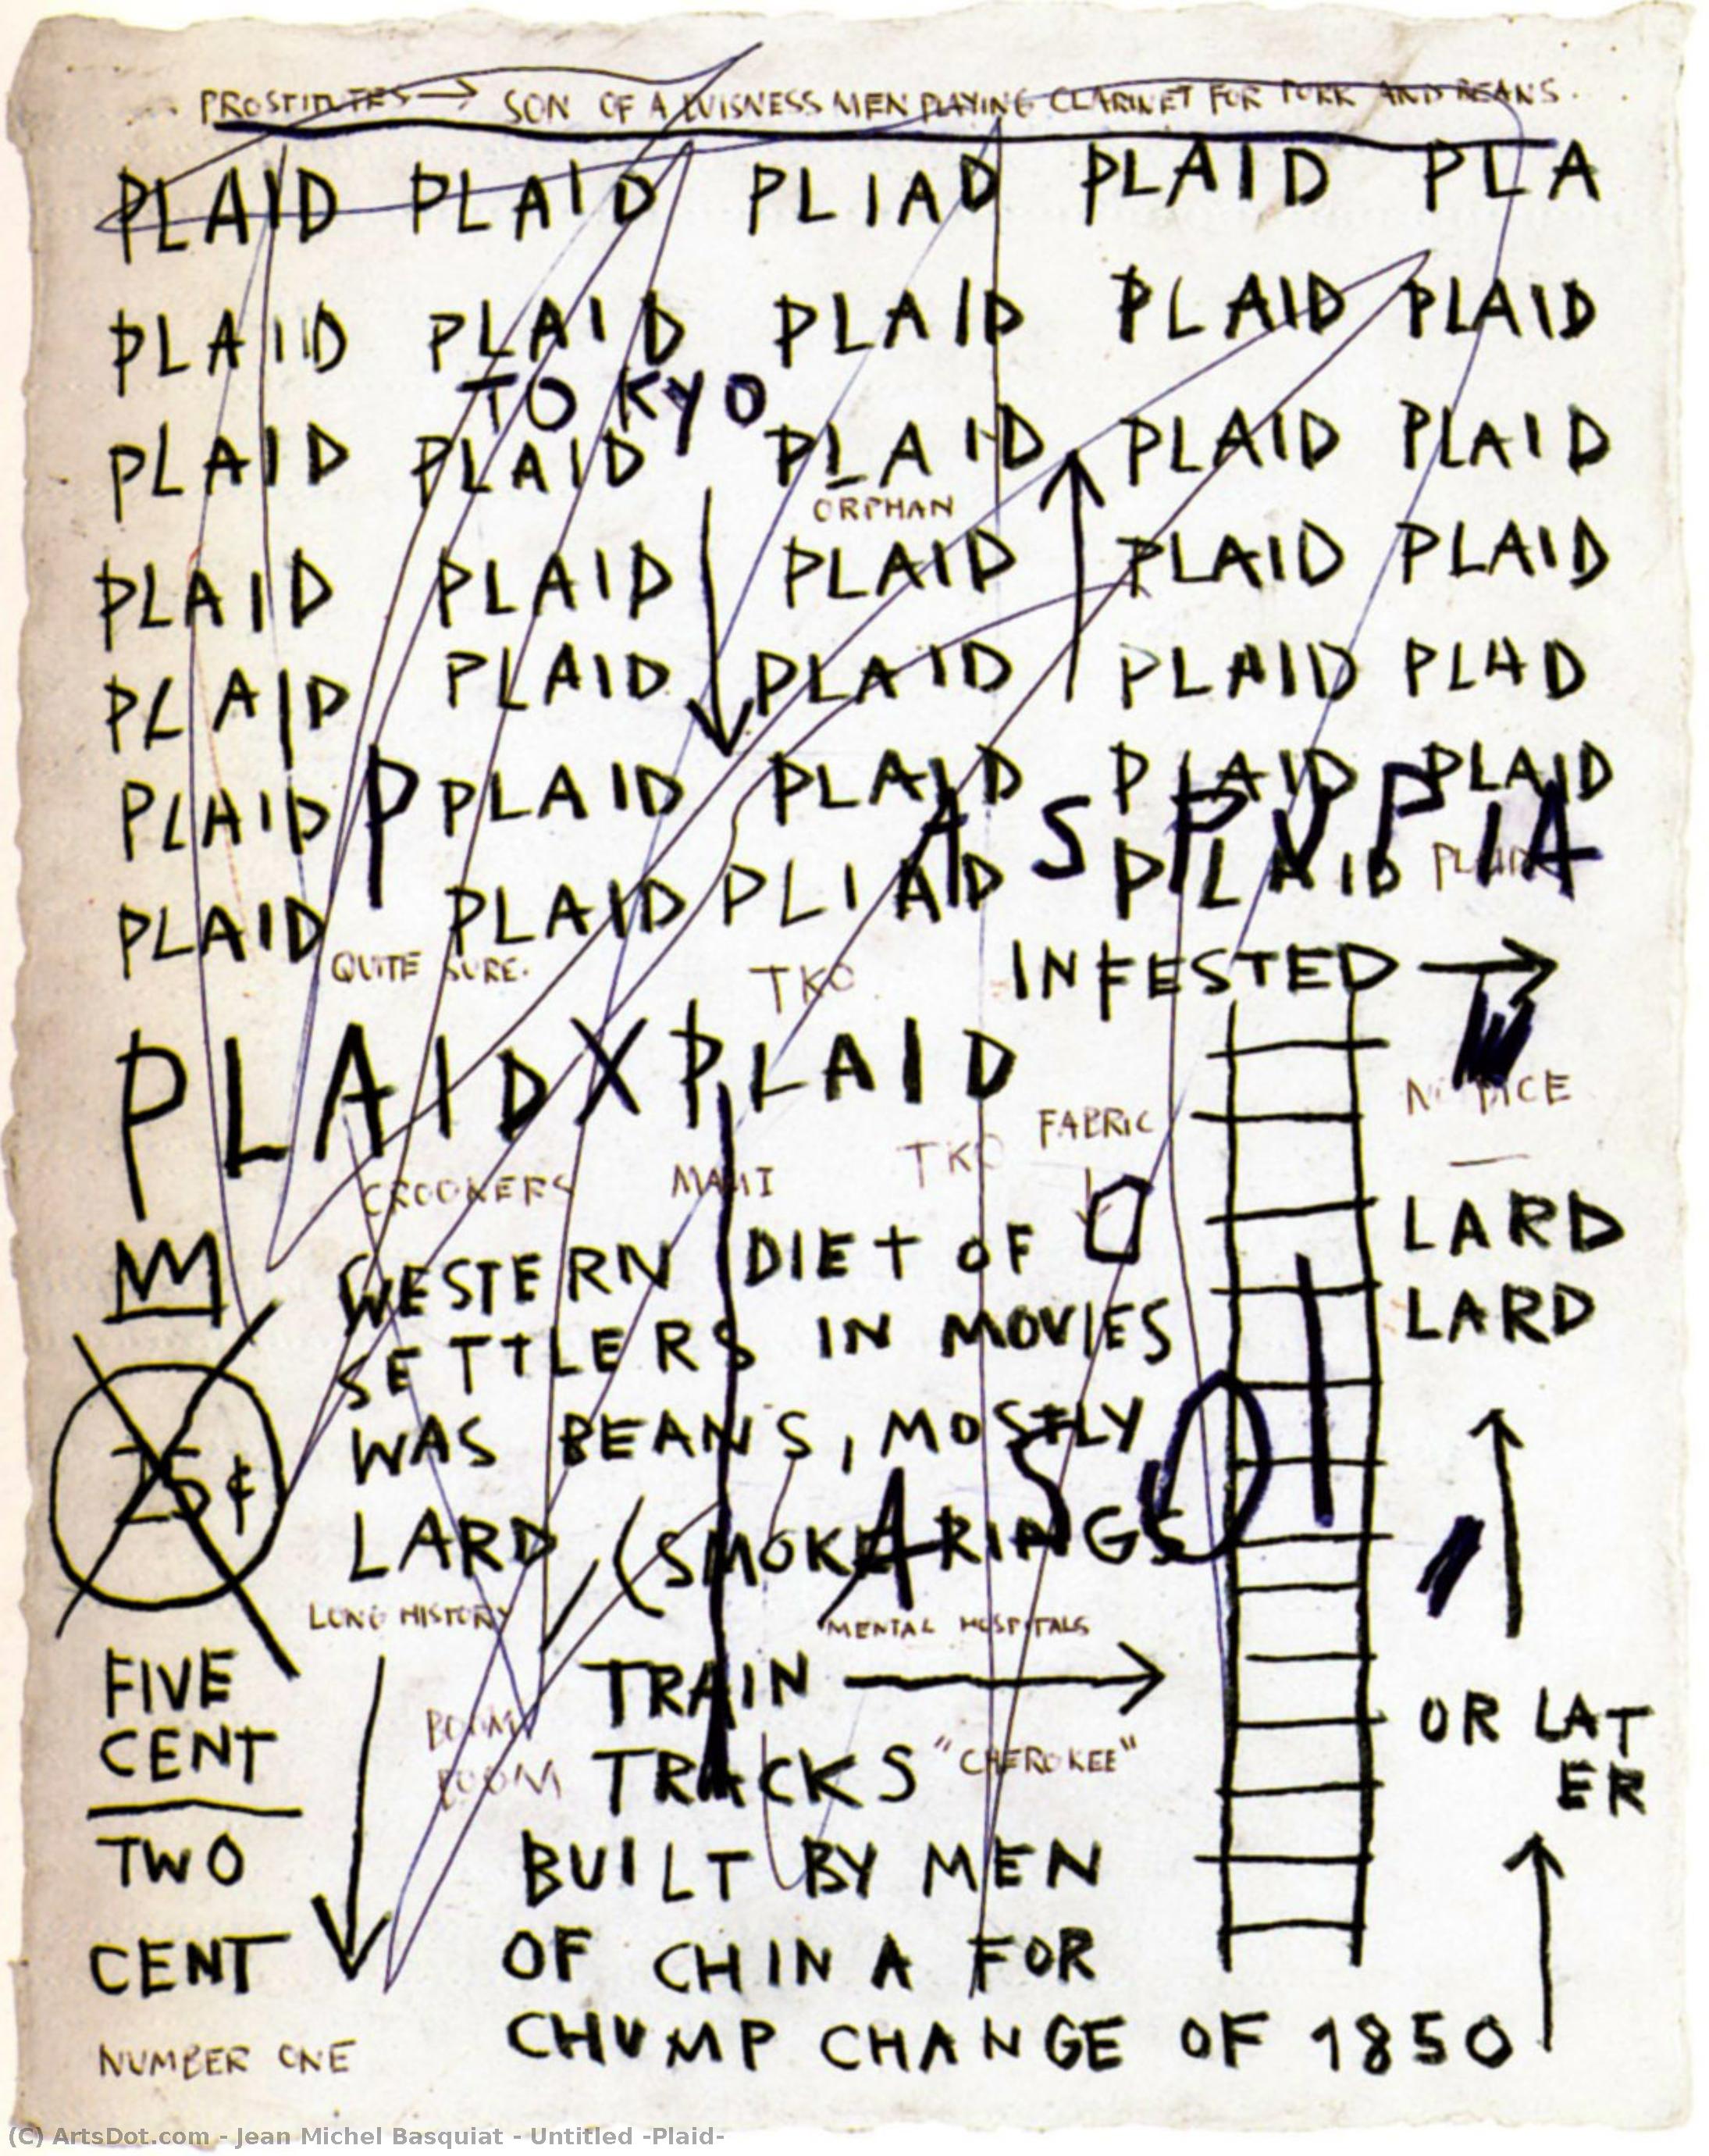 PROSTITUTES → SON OF A BUISNESS MEN PLAYING CLARINET FOR PORK AND BEANS.
PLAID PLAID PLIAD PLAID PLA
PLAID PLAID PLAID PLAID PLAID
TOKYO
PLAID PLAID PLAID PLAID PLAID
ORPHAN
PLAID PLAID PLAID PLAID PLAID
PLAID PLAID PLAID PLAID PLAD
PLAID P PLAID PLAID PLAID PLAID
A S P V P I A
PLAID PLAID PLIAD PLAID PLAID
QUITE SURE. TKO INFESTED →
PLAID X PLAID
NO DICE
CROOKERS MAUI TKO FABRIC
LARD
WESTERN DIET OF
SETTLERS IN MOVIES
LARD
WAS BEANS, MOSTLY
25¢
LARD (SMOKE RINGS
LONG HISTORY MENTAL HOSPITALS
FIVE
CENT
TRAIN →
BOOM
BOOM
TRACKS "CHEROKEE"
OR LAT
ER
TWO
CENT
BUILT BY MEN
OF CHINA FOR
CHUMP CHANGE OF 1850
NUMBER ONE
(C) ArtsDot.com - Jean Michel Basquiat - Untitled -Plaid-